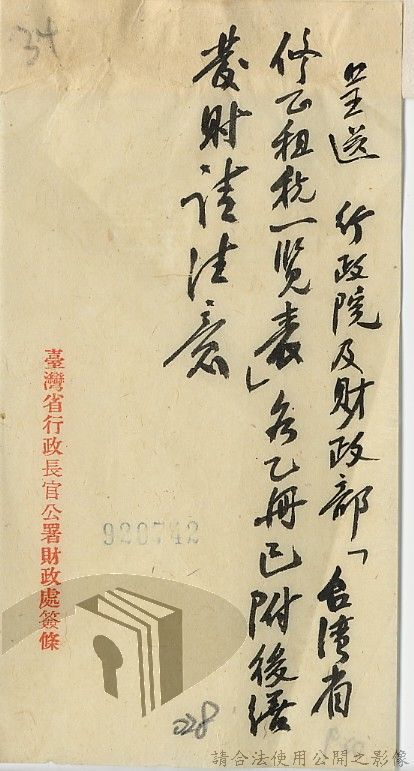 34
呈送 行政院及財政部「台湾省
修正租税一览表」各乙冊已附後繕
發时請注意
臺灣省行政長官公署財政處簽條
920742
028
請合法使用公開之影像